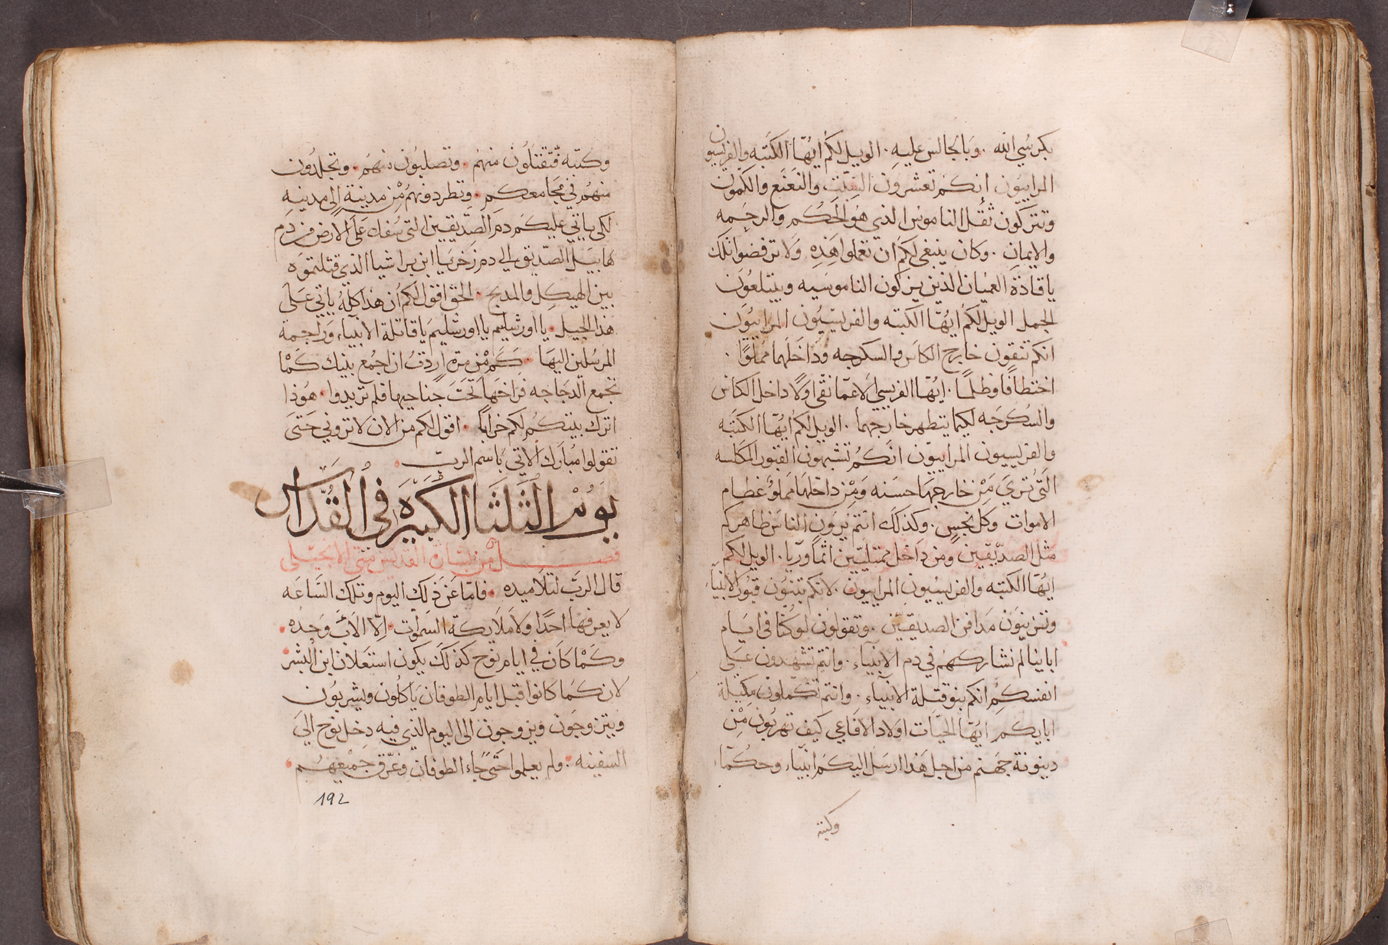 بكرسي الله . وبالجالس عليه . الويل لكم ايها الكتبه والفريسيون
المراييون . انكم تعشرون الشبت والنعنع والكمون
وتتركون ثقل الناموس الذي هو الحكم والرحمه
والايمان . وكان ينبغي لكم ان تعملوا هذه ولا ترفضوا تلك
يا قادة العميان الذين يتركون الناموسيه ويبتلعون
الجمل الويل لكم ايها الكتبه والفريسيون المراييون
انكم تنقون خارج الكاس والسكرجه وداخلها مملوًا .
اختطافا وظلمًا . ايها الفريسي الاعما نقي اولا داخل الكاس
والسكرجه لكيما يتطهر خارجهما . الويل لكم ايها الكتبه
والفريسيون المراييون انكم تشبهون القبور المكلسه
التي تري من خارجها حسنه ومن داخلها مملوه عظام
الاموات وكل نجس . وكذلك انتم ترون الناس ظاهركم
مثل الصديقين ومن داخل ممتليين اثما وريا . الويل لكم
ايها الكتبه والفريسيون المراييون . لانكم تبنون قبور الانبيا
وتزينون مدافن الصديقين . وتقولون لو كنا في ايام
اباينا لم نشاركهم في دم الانبياء . وانتم تشهدون علي
انفسكم انكم بنو قتلة الانبياء . وانتم تكملون مكيلة
ابايكم ايها الحيات اولاد الافاعي كيف تهربون من
دينونة جهنم من اجل هذا ارسل اليكم انبياء وحكما
وكتبه
وكتبه فتقتلون منهم . وتصلبون منهم . وتجلدون
منهم في مجامعكم . وتطردونهم من مدينة الي مدينه
لكي ياتي عليكم دم الصديقين التي سفك علي الارض من دم
هابيل الصديق الي دم زخريا ابن براشيا الذي قتلتموه
بين الهيكل والمدبح . الحق اقول لكم ان هذا كله ياتي علي
هذا الجيل . يا اورشليم يا اورشليم يا قاتلة الانبياء وراجمة
المرسلين اليها . كم من مرة اردت ان اجمع بنيك كما
تجمع الدجاجه فراخها تحت جناحيها فلم تريدوا . هوذا
اترك بيتكم لكم خرابًا . اقول لكم من الان لا تروني حتي
تقولوا مبارك الاتي باسم الرب .
يوم الثلثا الكبيره في القداس
فصل من بشارة القديس متي الانجيلي
قال الرب لتلاميده . فاما عن ذلك اليوم وتلك الساعه
لا يعرفها احدًا ولا ملايكة السموت . الا الاب وحده .
وكما كان في ايام نوح كذلك يكون استعلان ابن البشر
لان كما كانوا قبل ايام الطوفان ياكلون ويشربون
ويتزوجون ويزوجون الي اليوم الذي فيه دخل نوح الي
السفينه . ولم يعلموا حتي جاء الطوفان وغرق جميعهم .
192